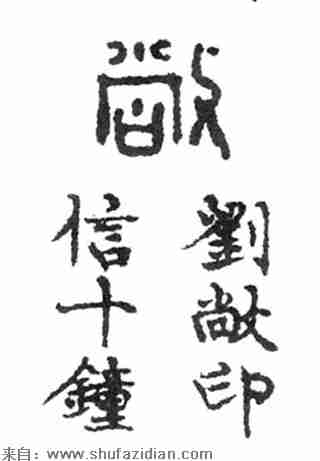 敞
劉敞印
信十鐘
来自：www.shufazidian.com